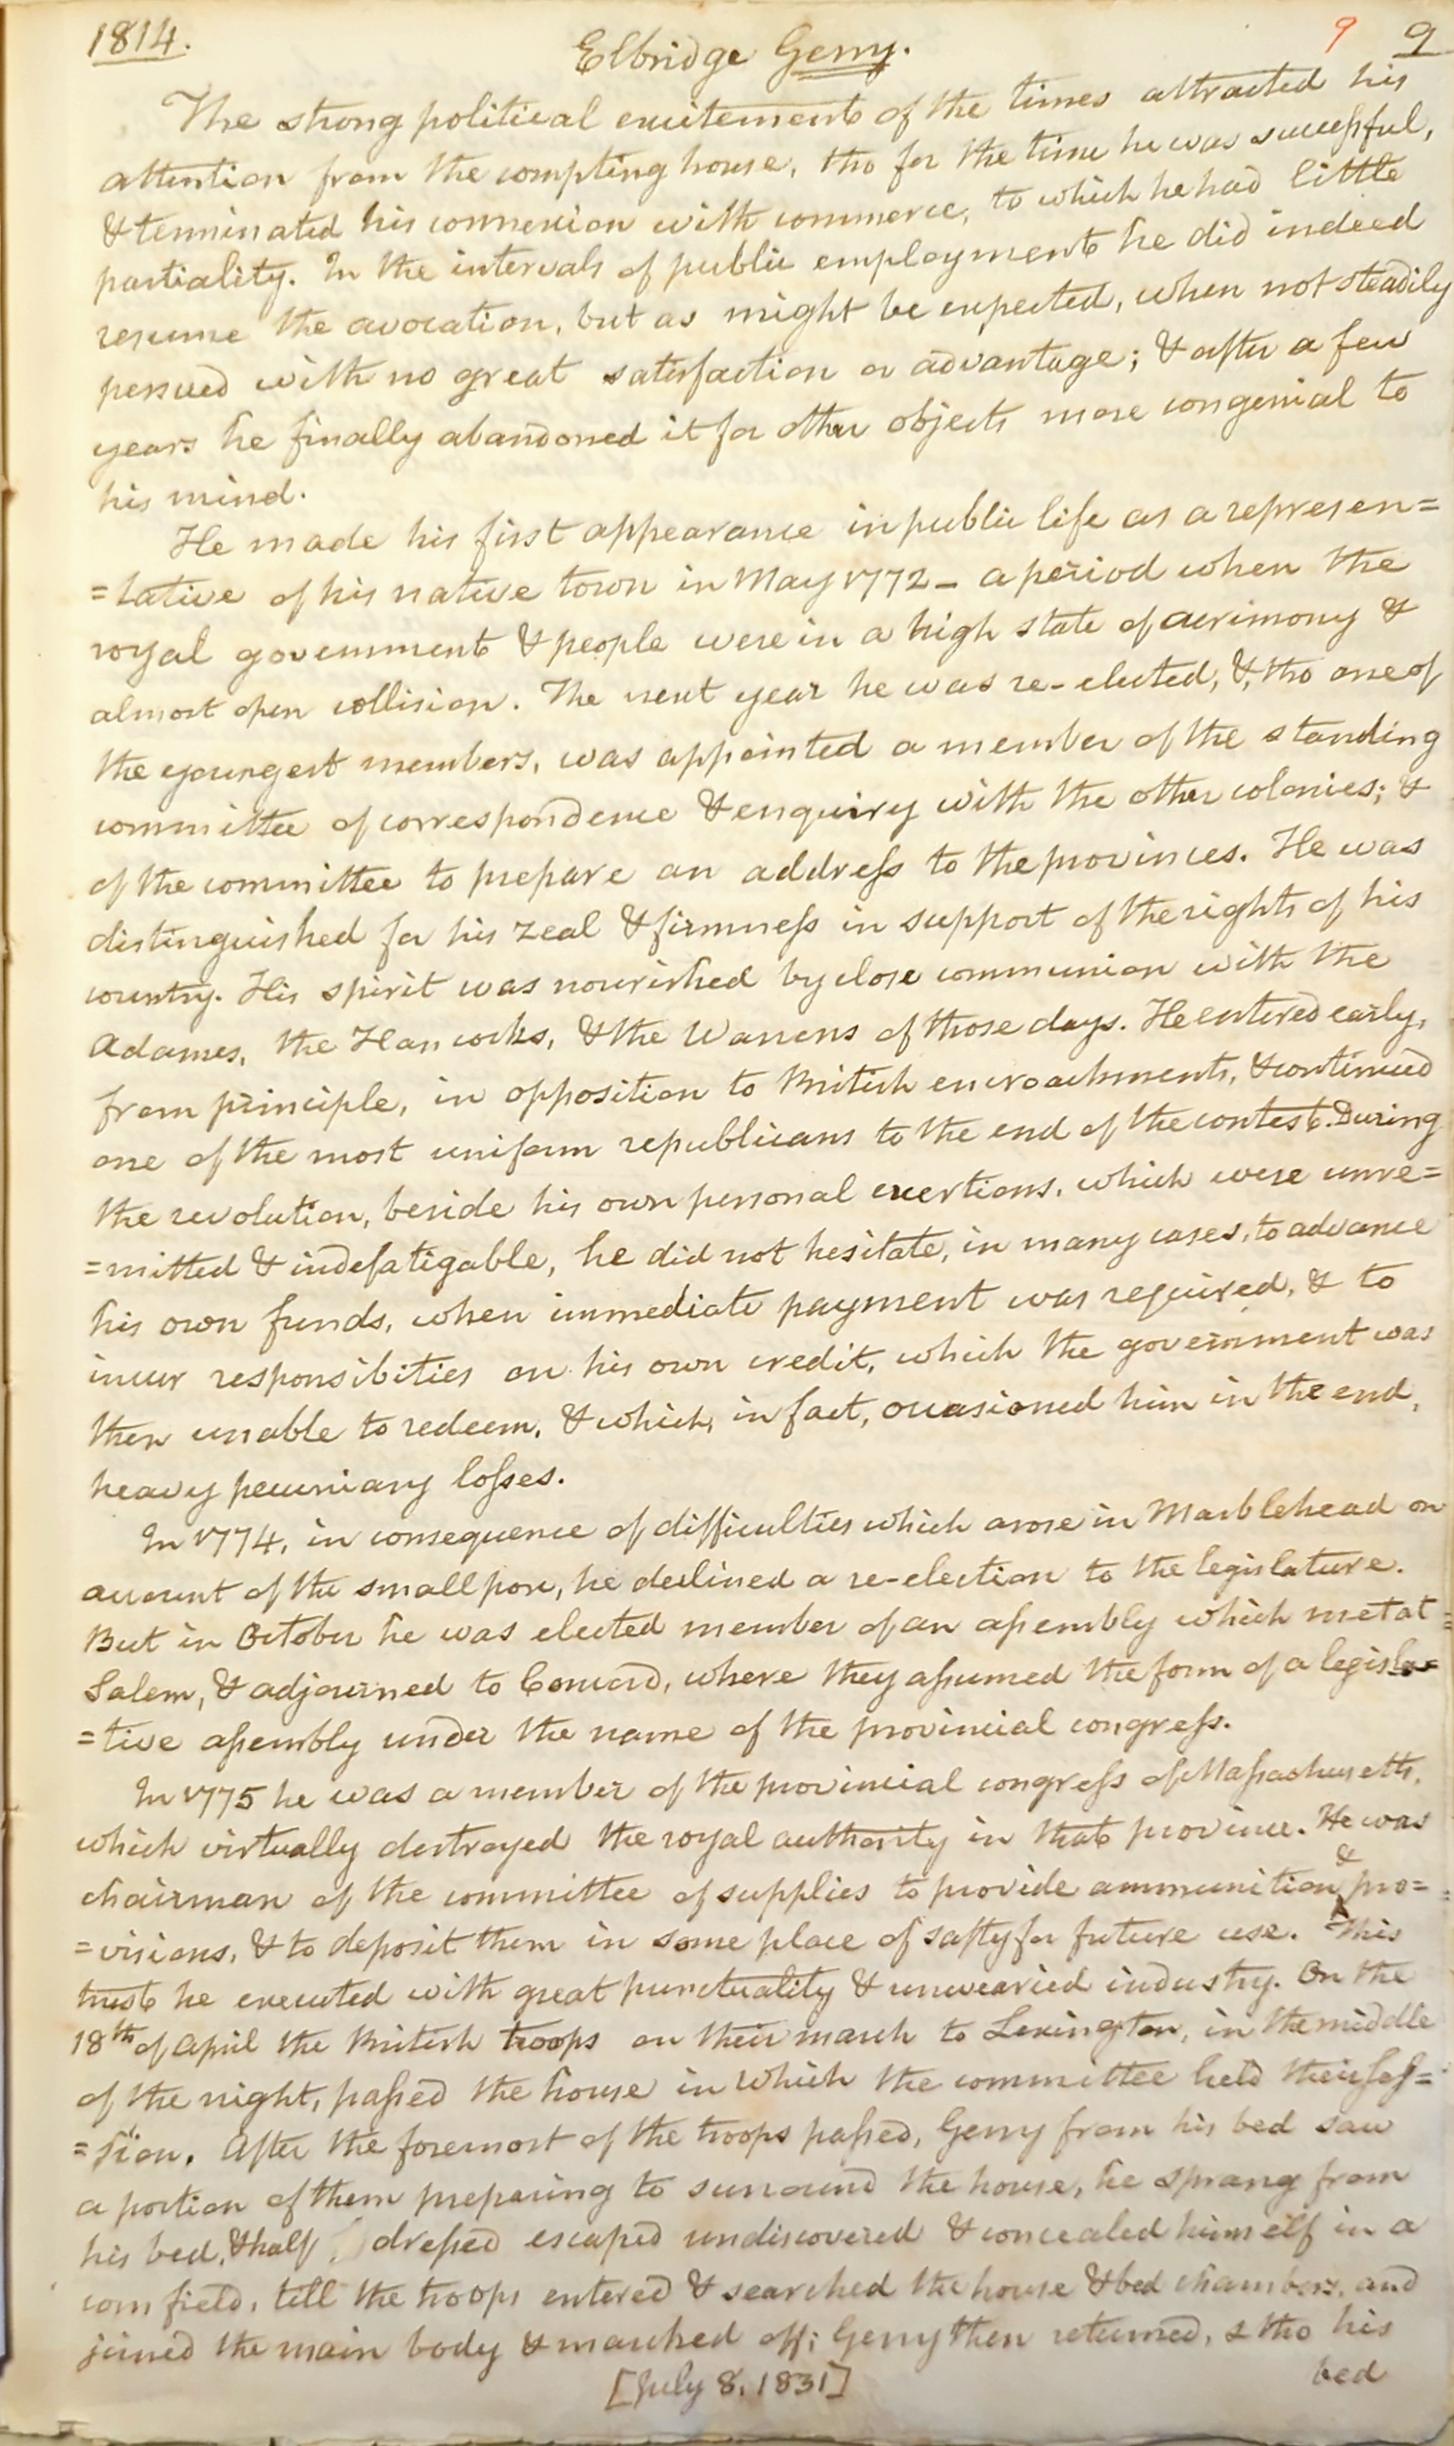 1814.
Elbridge Gerry.
9 9
The strong political excitement of the times attracted his
attention from the compting house, tho for the time he was successful,
& terminated his connexion with commerce, to which he had little
partiality. In the intervals of public employment he did indeed
resume the avocation, but as might be expected, when not steadily
persued with no great satisfaction or advantage; & after a few
years he finally abandoned it for other objects more congenial to
his mind.
He made his first appearance in public life as a represen=
=tative of his native town in May 1772 - a period when the
royal government & people were in a high state of acrimony &
almost open collision. The next year he was re-elected, &, tho one of
the youngest members, was appointed a member of the standing
committee of correspondence & enquiry with the other colonies; &
of the committee to prepare an address to the provinces. He was
distinguished for his zeal & firmness in support of the rights of his
country. His spirit was nourished by close communion with the
Adames, the Hancocks, & the Warrens of those days. He entered early,
from principle, in opposition to British encroachments, & continued
one of the most uniform republicans to the end of the contest. During
the revolution, beside his own personal exertions, which were unre=
=mitted & indefatigable, he did not hesitate, in many cases, to advance
his own funds, when immediate payment was required, & to
incur responsibities on his own credit, which the government was
then unable to redeem, & which, in fact, occasioned him in the end,
heavy pecuniary losses.
In 1774, in consequence of difficulties which arose in Marblehead on
account of the small pox, he declined a re-election to the legislature.
But in October he was elected member of an assembly which met at
Salem, & adjourned to Concord, where they assumed the form of a legisla=
=tive assembly under the name of the provincial congress.
In 1775 he was a member of the provincial congress of Massachusetts,
which virtually destroyed the royal authority in that province. He was
chairman of the committee of supplies to provide ammunition & pro=
=visions, & to deposit them in some place of safty for future use. This
trust he executed with great punctuality & unwearied industry. On the
18th of April the British troops on their march to Lexington, in the middle
of the night, passed the house in which the committee held their ses=
=sion. After the foremost of the troops passed, Gerry from his bed saw
a portion of them preparing to surround the house, he sprang from
his bed, & half dressed escaped undiscovered & concealed himself in a
corn field, till the troops entered & searched the house & bed chambers, and
joined the main body & marched off; Gerry then returned, & tho his
bed
[July 8, 1831]